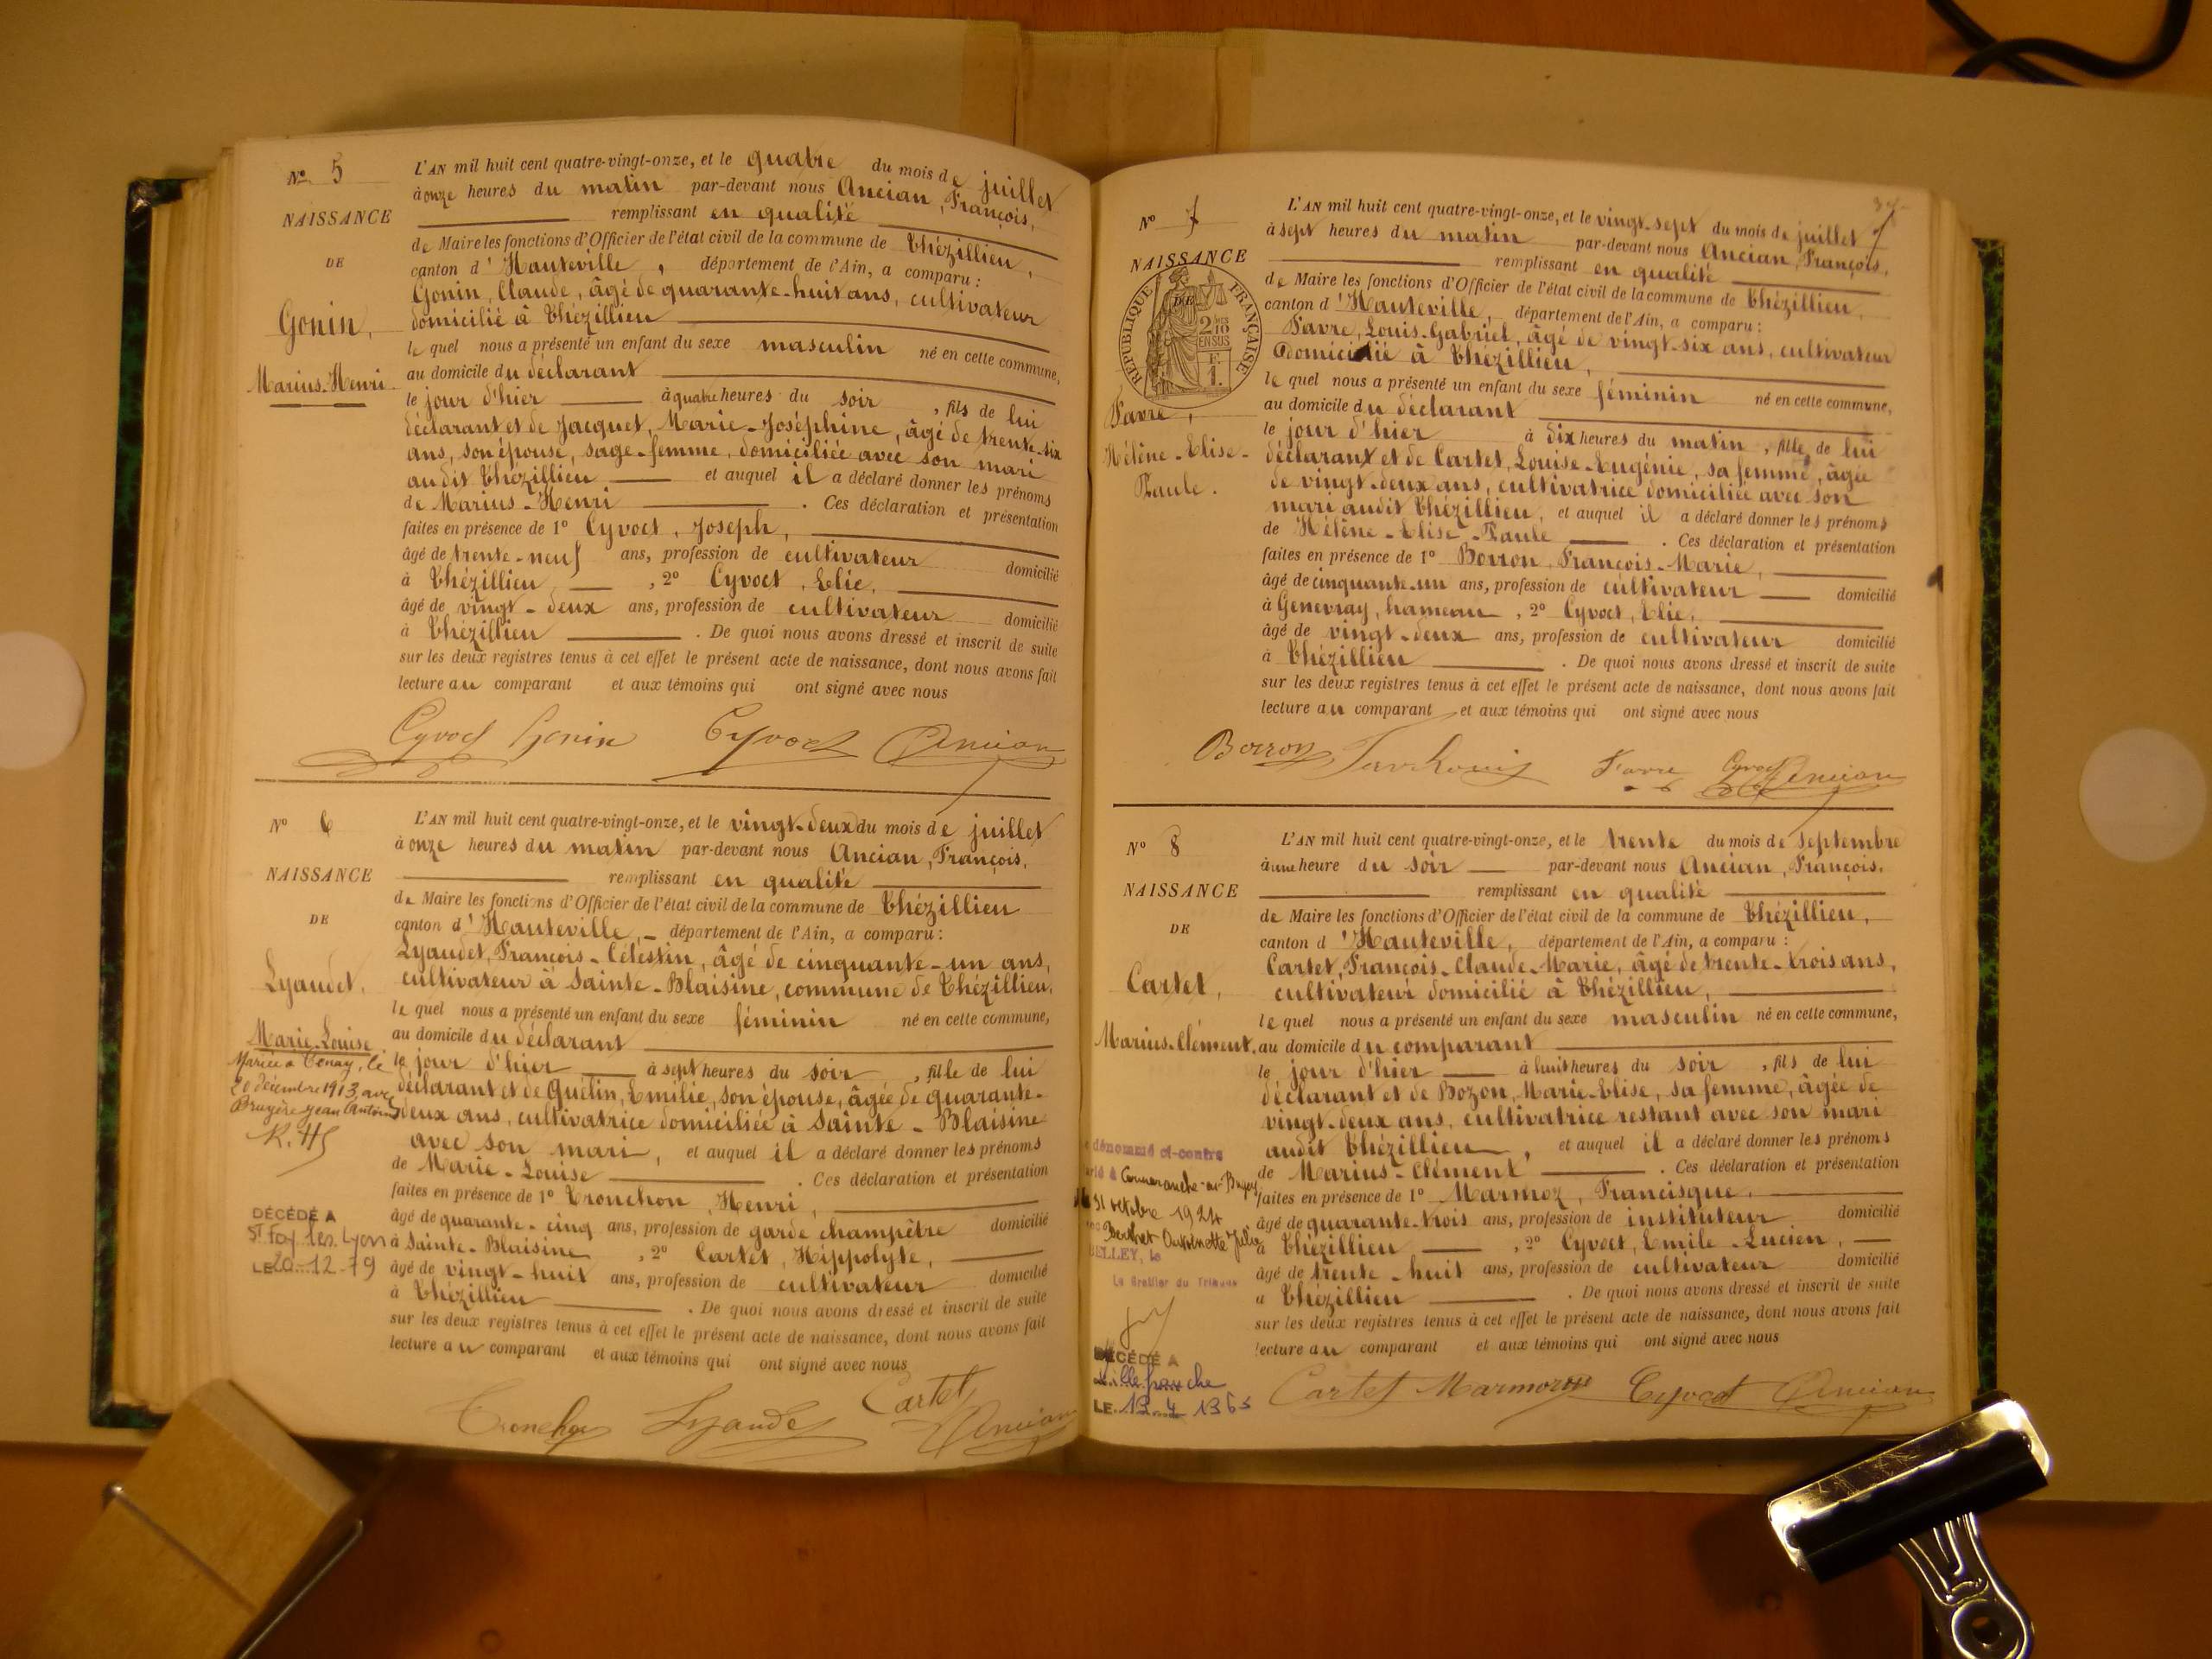 Nº 5
NAISSANCE
DE
Gonin,
Marius-Henri
L'AN mil huit cent quatre-vingt-onze, et le quatre du mois de juillet
à onze heures du matin par-devant nous Ancian, François,
remplissant en qualité
de Maire les fonctions d'Officier de l'état civil de la commune de Thézillieu,
canton d'Hauteville, département de l'Ain, a comparu :
Gonin, Claude, âgé de quarante-huit ans, cultivateur
domicilié à Thézillieu
lequel nous a présenté un enfant du sexe masculin né en cette commune,
au domicile du déclarant
le jour d'hier à quatre heures du soir, fils de lui
déclarant et de Jacquet, Marie-Joséphine, âgé de trente-six
ans, son épouse, sage-femme, domiciliée avec son mari
audit Thézillieu et auquel il a déclaré donner les prénoms
de Marius-Henri. Ces déclaration et présentation
faites en présence de 1º Cyvoct, Joseph,
âgé de trente-neuf ans, profession de cultivateur domicilié
à Thézillieu, 2º Cyvoct, Élie,
âgé de vingt-deux ans, profession de cultivateur domicilié
à Thézillieu. De quoi nous avons dressé et inscrit de suite
sur les deux registres tenus à cet effet le présent acte de naissance, dont nous avons fait
lecture au comparant et aux témoins qui ont signé avec nous
Cyvoct Gonin Cyvoct Ancian
Nº 6
NAISSANCE
DE
Lyaudet,
Marie-Louise
Mariée à Tenay, le
20 décembre 1913, avec
Bruyère Jean Antoine
DÉCÉDÉ A
St Foy les Lyon
LE 20-12-79
L'AN mil huit cent quatre-vingt-onze, et le vingt-deux du mois de juillet
à onze heures du matin par-devant nous Ancian, François,
remplissant en qualité
de Maire les fonctions d'Officier de l'état civil de la commune de Thézillieu
canton d'Hauteville, département de l'Ain, a comparu :
Lyaudet, François-Célestin, âgé de cinquante-un ans,
cultivateur à Sainte-Blaisine, commune de Thézillieu,
lequel nous a présenté un enfant du sexe féminin né en cette commune,
au domicile du déclarant
le jour d'hier à sept heures du soir, fille de lui
déclarant et de Guélin, Émilie, son épouse, âgée de quarante-
deux ans, cultivatrice domiciliée à Sainte-Blaisine
avec son mari, et auquel il a déclaré donner les prénoms
de Marie-Louise. Ces déclaration et présentation
faites en présence de 1º Tronchon, Henri,
âgé de quarante-cinq ans, profession de garde champêtre domicilié
à Sainte-Blaisine, 2º Cartet, Hippolyte,
âgé de vingt-huit ans, profession de cultivateur domicilié
à Thézillieu. De quoi nous avons dressé et inscrit de suite
sur les deux registres tenus à cet effet le présent acte de naissance, dont nous avons fait
lecture au comparant et aux témoins qui ont signé avec nous
Tronchon Lyaudet Cartet Ancian
Nº 7
NAISSANCE
DE
RÉPUBLIQUE FRANÇAISE
2/10 EN SUS
F. 1.
Favre,
Hélène-Élise-
Paule.
7
L'AN mil huit cent quatre-vingt-onze, et le vingt-sept du mois de juillet
à sept heures du matin par-devant nous Ancian, François,
remplissant en qualité
de Maire les fonctions d'Officier de l'état civil de la commune de Thézillieu,
canton d'Hauteville, département de l'Ain, a comparu :
Favre, Louis-Gabriel, âgé de vingt-six ans, cultivateur
domicilié à Thézillieu,
lequel nous a présenté un enfant du sexe féminin né en cette commune,
au domicile du déclarant
le jour d'hier à dix heures du matin, fille de lui
déclarant et de Cartet, Louise-Eugénie, sa femme, âgée
de vingt-deux ans, cultivatrice domiciliée avec son
mari audit Thézillieu, et auquel il a déclaré donner les prénoms
de Hélène-Élise-Paule. Ces déclaration et présentation
faites en présence de 1º Borron, François-Marie,
âgé de cinquante-un ans, profession de cultivateur domicilié
à Genevray, hameau, 2º Cyvoct, Élie,
âgé de vingt-deux ans, profession de cultivateur domicilié
à Thézillieu. De quoi nous avons dressé et inscrit de suite
sur les deux registres tenus à cet effet le présent acte de naissance, dont nous avons fait
lecture au comparant et aux témoins qui ont signé avec nous
Borron Favre Cyvoct Ancian
Nº 8
NAISSANCE
DE
Cartet,
Marius-Clément,
dénommé ci-contre
31 octobre 1924
Berthet Antoinette Julie
BELLEY, le
Le Greffier du Tribunal
DÉCÉDÉ A
Villefranche
LE 13 4 1965
L'AN mil huit cent quatre-vingt-onze, et le trente du mois de septembre
à une heure du soir par-devant nous Ancian, François,
remplissant en qualité
de Maire les fonctions d'Officier de l'état civil de la commune de Thézillieu,
canton d'Hauteville, département de l'Ain, a comparu :
Cartet, François-Claude-Marie, âgé de trente-trois ans,
cultivateur domicilié à Thézillieu,
lequel nous a présenté un enfant du sexe masculin né en cette commune,
au domicile du comparant
le jour d'hier à huit heures du soir, fils de lui
déclarant et de Bozon, Marie-Élise, sa femme, âgée de
vingt-deux ans, cultivatrice restant avec son mari
audit Thézillieu, et auquel il a déclaré donner les prénoms
de Marius-Clément. Ces déclaration et présentation
faites en présence de 1º Marmoz, Francisque,
âgé de quarante-trois ans, profession de instituteur domicilié
à Thézillieu, 2º Cyvoct, Émile-Lucien,
âgé de trente-huit ans, profession de cultivateur domicilié
à Thézillieu. De quoi nous avons dressé et inscrit de suite
sur les deux registres tenus à cet effet le présent acte de naissance, dont nous avons fait
lecture au comparant et aux témoins qui ont signé avec nous
Cartet Marmoz Cyvoct Ancian